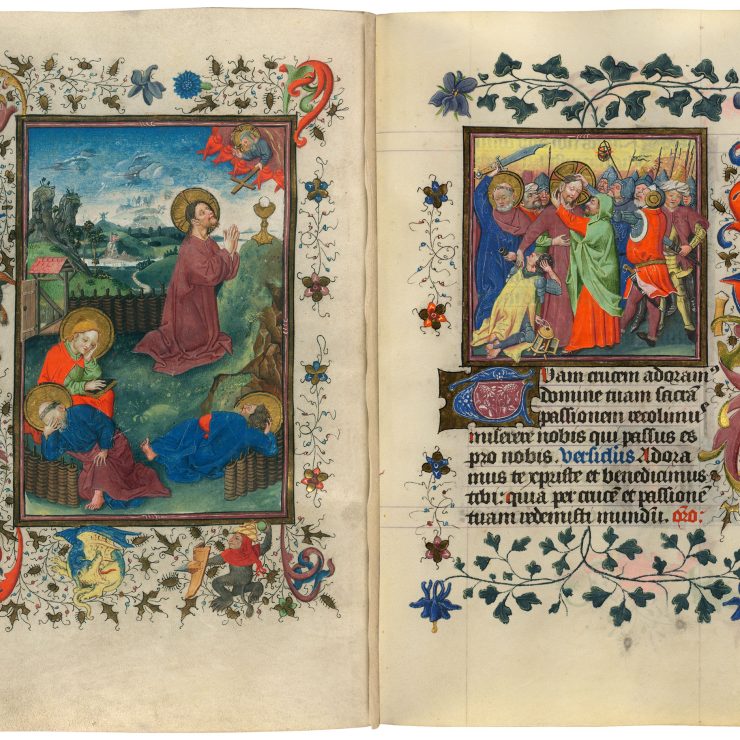 Tuam crucem adoram⁹
domine tuam sacrā
passionem recolimu⁹
miserere nobis qui passus es
pro nobis. Versiculus Adora
mus te xpriste et benedicimus
tibi: quia per crucē et passionē
tuam redemisti mundū. oro: